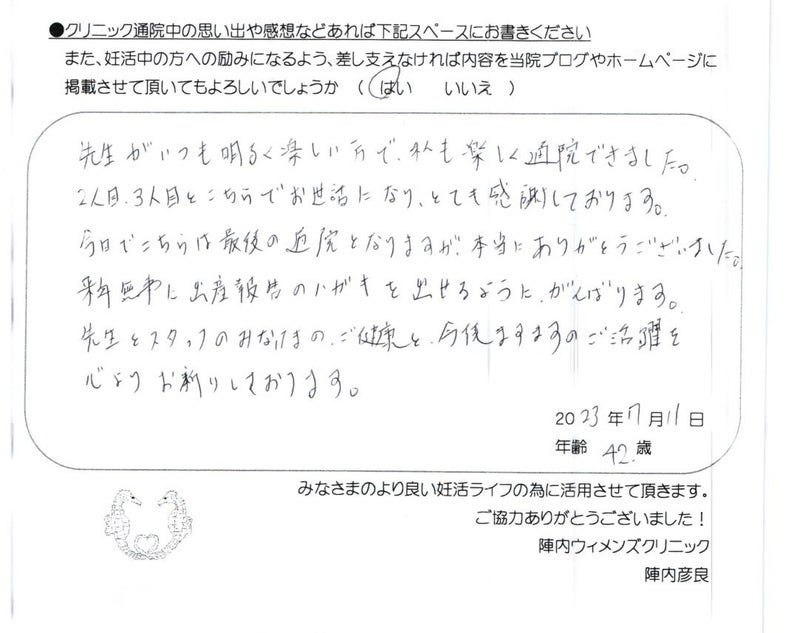 ●クリニック通院中の思い出や感想などあれば下記スペースにお書きください
また、妊活中の方への励みになるよう、差し支えなければ内容を当院ブログやホームページに
掲載させて頂いてもよろしいでしょうか （ はい　いいえ ）
先生がいつも明るく楽しい方で、私も楽しく通院できました。
2人目、3人目とこちらでお世話になり、とても感謝しております。
今日でこちらは最後の通院となりますが、本当にありがとうございました。
来年無事に出産報告のハガキを出せるように、がんばります。
先生とスタッフのみなさまの、ご健康と、今後ますますのご活躍を
心よりお祈りしております。
2023年7月11日
年齢 42歳
みなさまのより良い妊活ライフの為に活用させて頂きます。
ご協力ありがとうございました！
陣内ウィメンズクリニック
陣内彦良